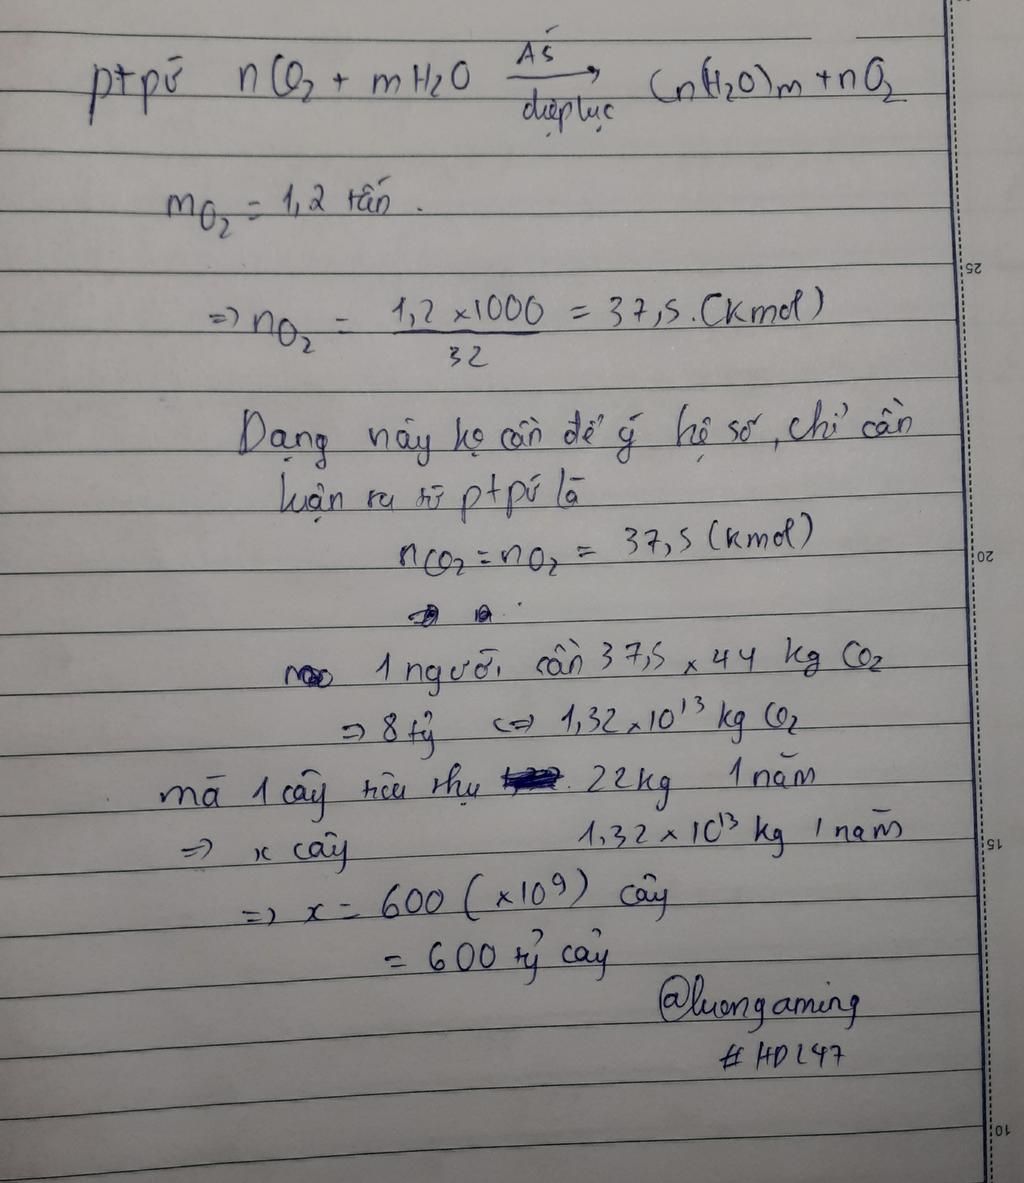 ptpứ nCO2 + mH2O AS → diệp lục Cn(H2O)m + nO2
mO2 = 1,2 tấn.
=> nO2 = 1,2 x1000 / 32 = 37,5. (kmol)
Dạng này ko cần để ý hệ số, chỉ cần
luận ra từ ptpứ là
nCO2 = nO2 = 37,5 (kmol)
1 người cần 37,5 x 44 kg CO2
=> 8 tỷ <=> 1,32 x 10^13 kg CO2
mà 1 cây tiêu thụ 22kg 1 năm
=> x cây 1,32 x 10^13 kg 1 năm
=> x = 600 (x10^9) cây
= 600 tỷ cây
@luongaming
#HDL47
25
20
15
10